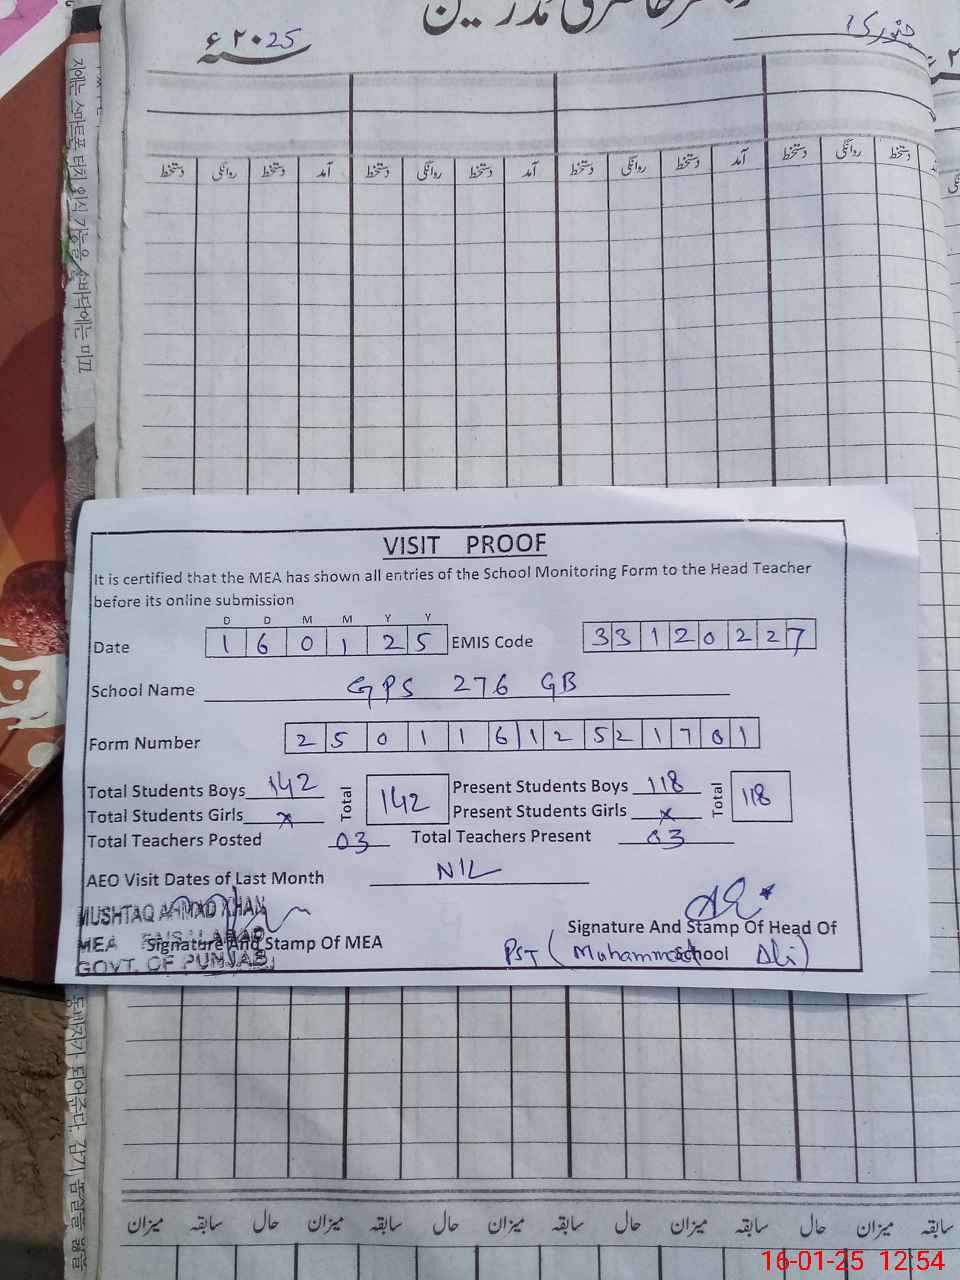 دفتر حاضری مدرسین
جنوری
سنہ ۲۰25ء
دستخط روانگی دستخط آمد دستخط روانگی دستخط آمد دستخط روانگی دستخط آمد دستخط روانگی دستخط
VISIT PROOF
It is certified that the MEA has shown all entries of the School Monitoring Form to the Head Teacher
before its online submission
D D M M Y Y
Date 1 6 0 1 2 5 EMIS Code 3 3 1 2 0 2 2 7
School Name GPS 276 GB
Form Number 2 5 0 1 1 6 1 2 5 2 1 7 0 1
Total Students Boys 142 Total 142 Present Students Boys 118 Total 118
Total Students Girls x Present Students Girls x
Total Teachers Posted 03 Total Teachers Present 03
AEO Visit Dates of Last Month NIL
MUSHTAQ AHMAD KHAN
MEA FAISALABAD
GOVT. OF PUNJAB
Signature And Stamp Of MEA
Signature And Stamp Of Head Of
School
PST (Muhammad Ali)
میزان سابقہ حال میزان سابقہ حال میزان سابقہ حال میزان سابقہ حال میزان سابقہ
16-01-25 12:54